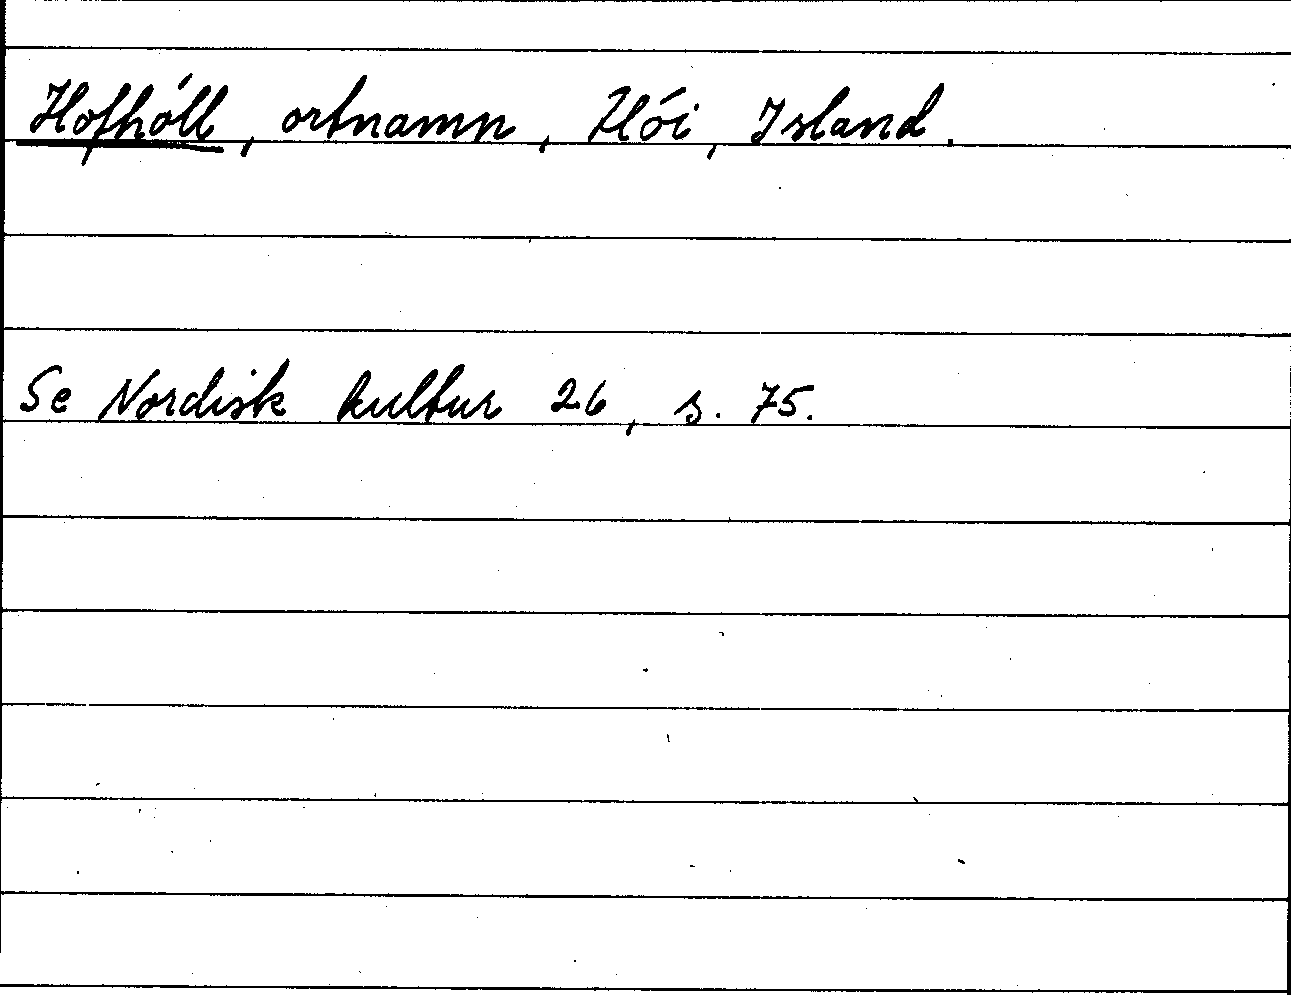 Hofhóll, ortnamn, Flói, Island.
Se Nordisk kultur 26, s. 75.